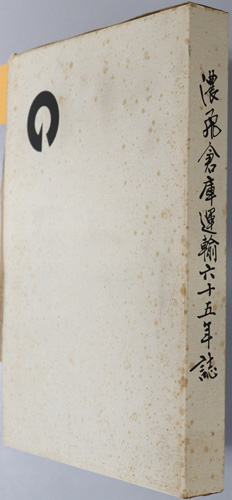 濃飛倉庫運輸六十五年誌